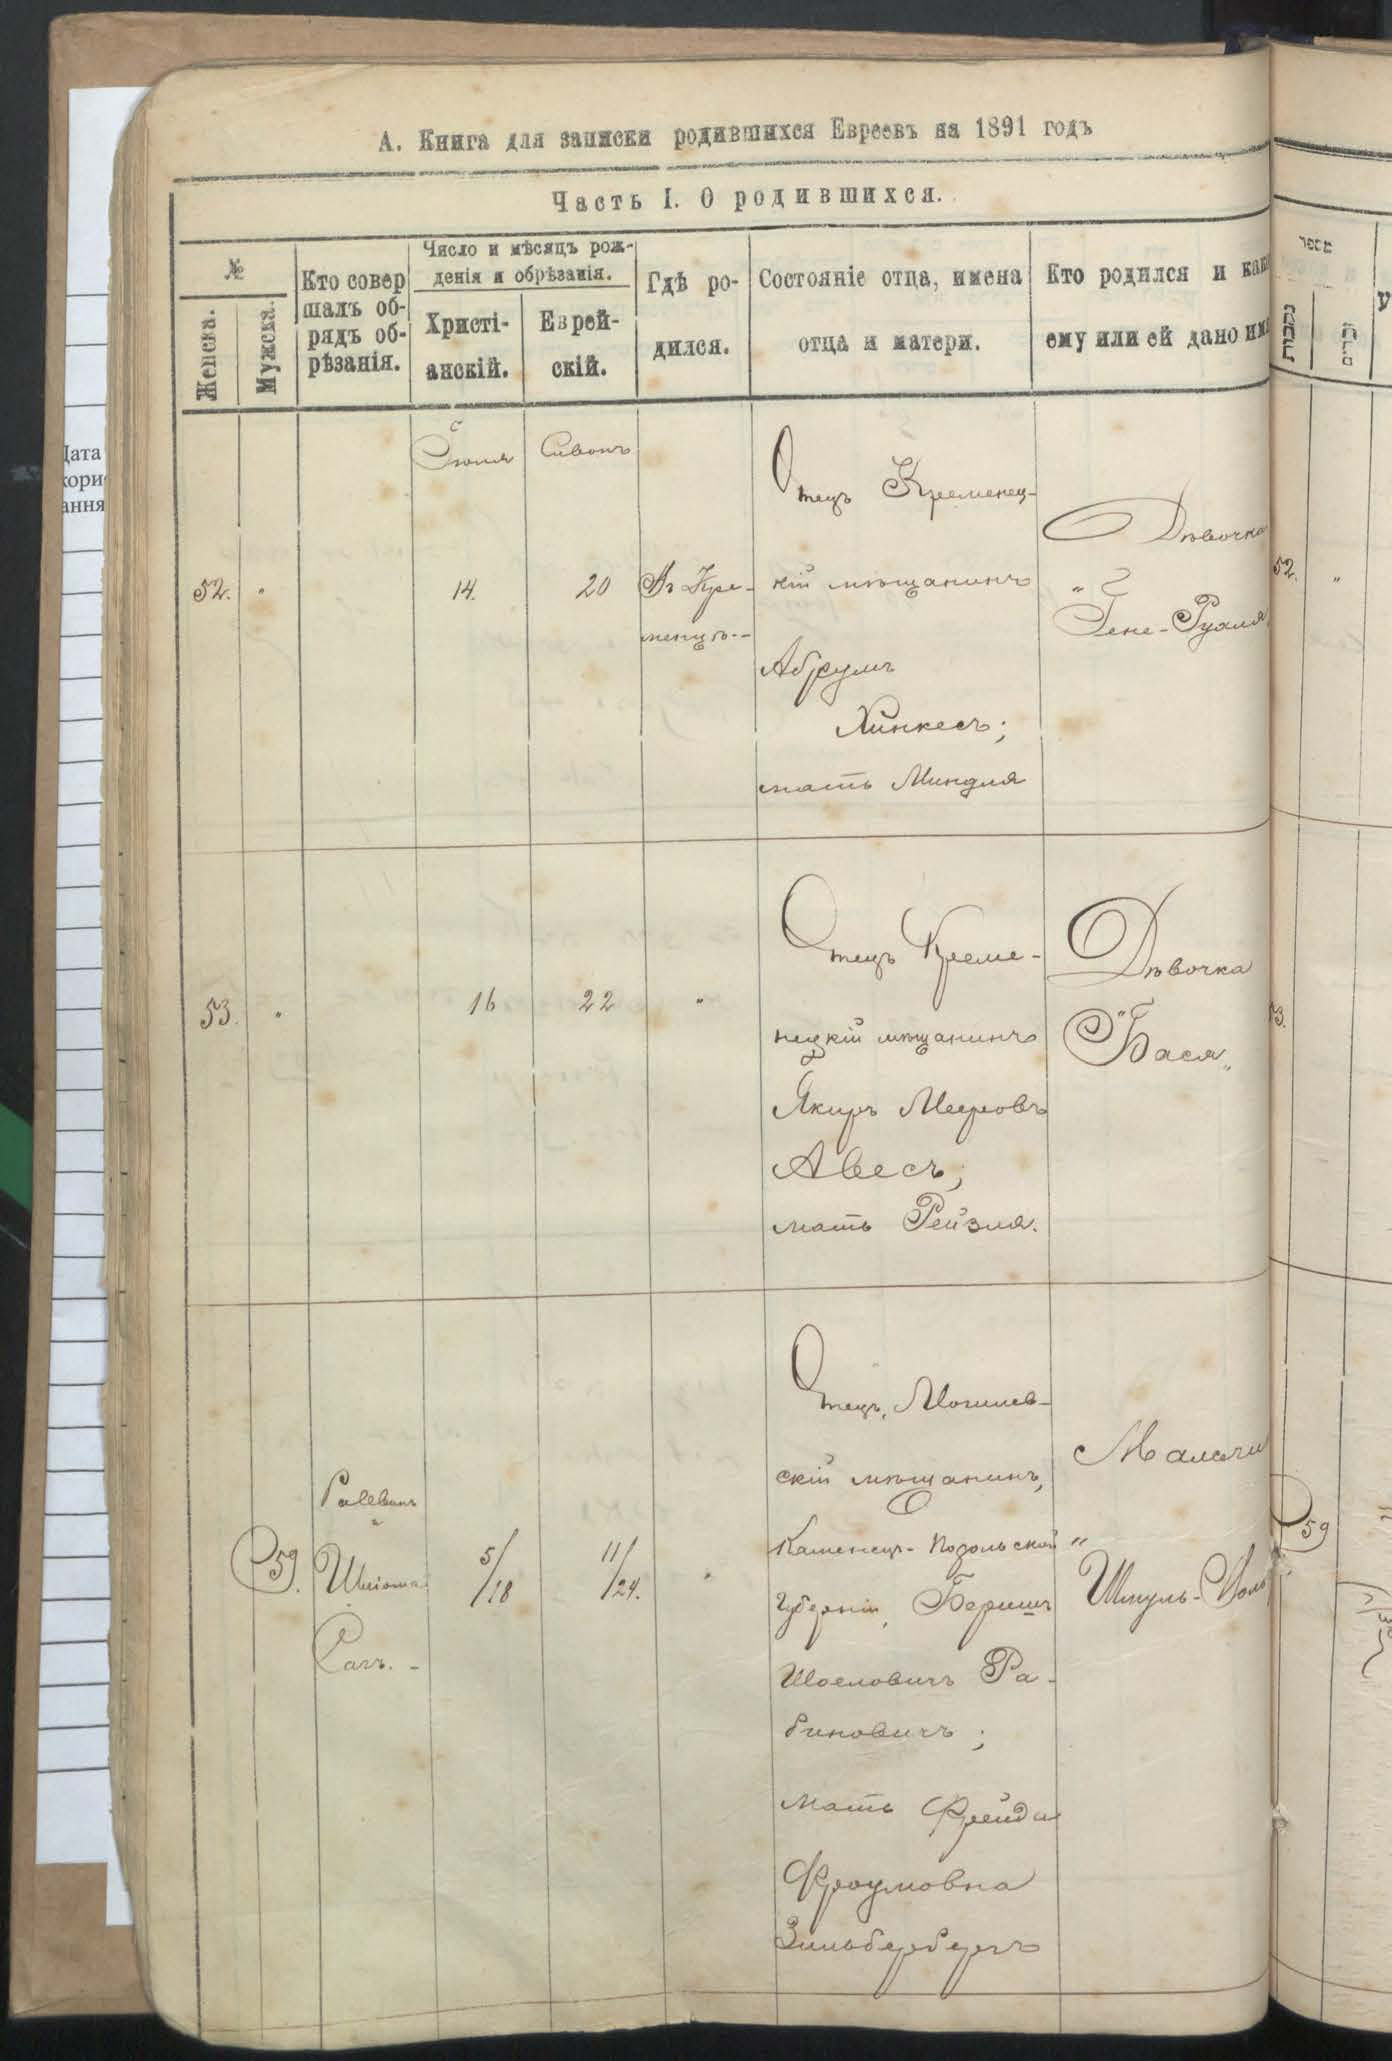 А. Книга для записки родившихся Евреевъ на 1891 годъ
Часть I. О родившихся.
№
Женска.
Мужска.
Кто совер
шалъ об-
рядъ об-
рѣзанія.
Число и мѣсяцъ рож-
денія и обрѣзанія.
Христі-
анскій.
Еврей-
скій.
Гдѣ ро-
дился.
Состояніе отца, имена
отца и матери.
Кто родился и как
ему или ей дано им
מספר
נקבות
זכרים
У
Дата
Сивонъ
52.
"
14.
20
Въ Кре-
менцѣ.-
Отецъ Кременец-
кій мѣщанинъ
Абрумъ
Хинкесъ;
мать Миндля
Дѣвочка
"
Гене-Рухля
52.
"
53.
"
16
22
"
Отецъ Креме-
нецкій мѣщанинъ
Якиръ Мееровъ
Авесъ;
мать Рейзля.
Дѣвочка
"Бася"
3.
59.
Раввинъ
и
Шліома
5/18
11/24.
"
Отецъ, Могилев-
скій мѣщанинъ,
Каменецъ-Подольской
Губерніи, Беришъ
Шоеловичъ Ра-
биновичъ;
мать Фрейда
Фроумовна
Зильбербергъ
"
Шмуль-
59